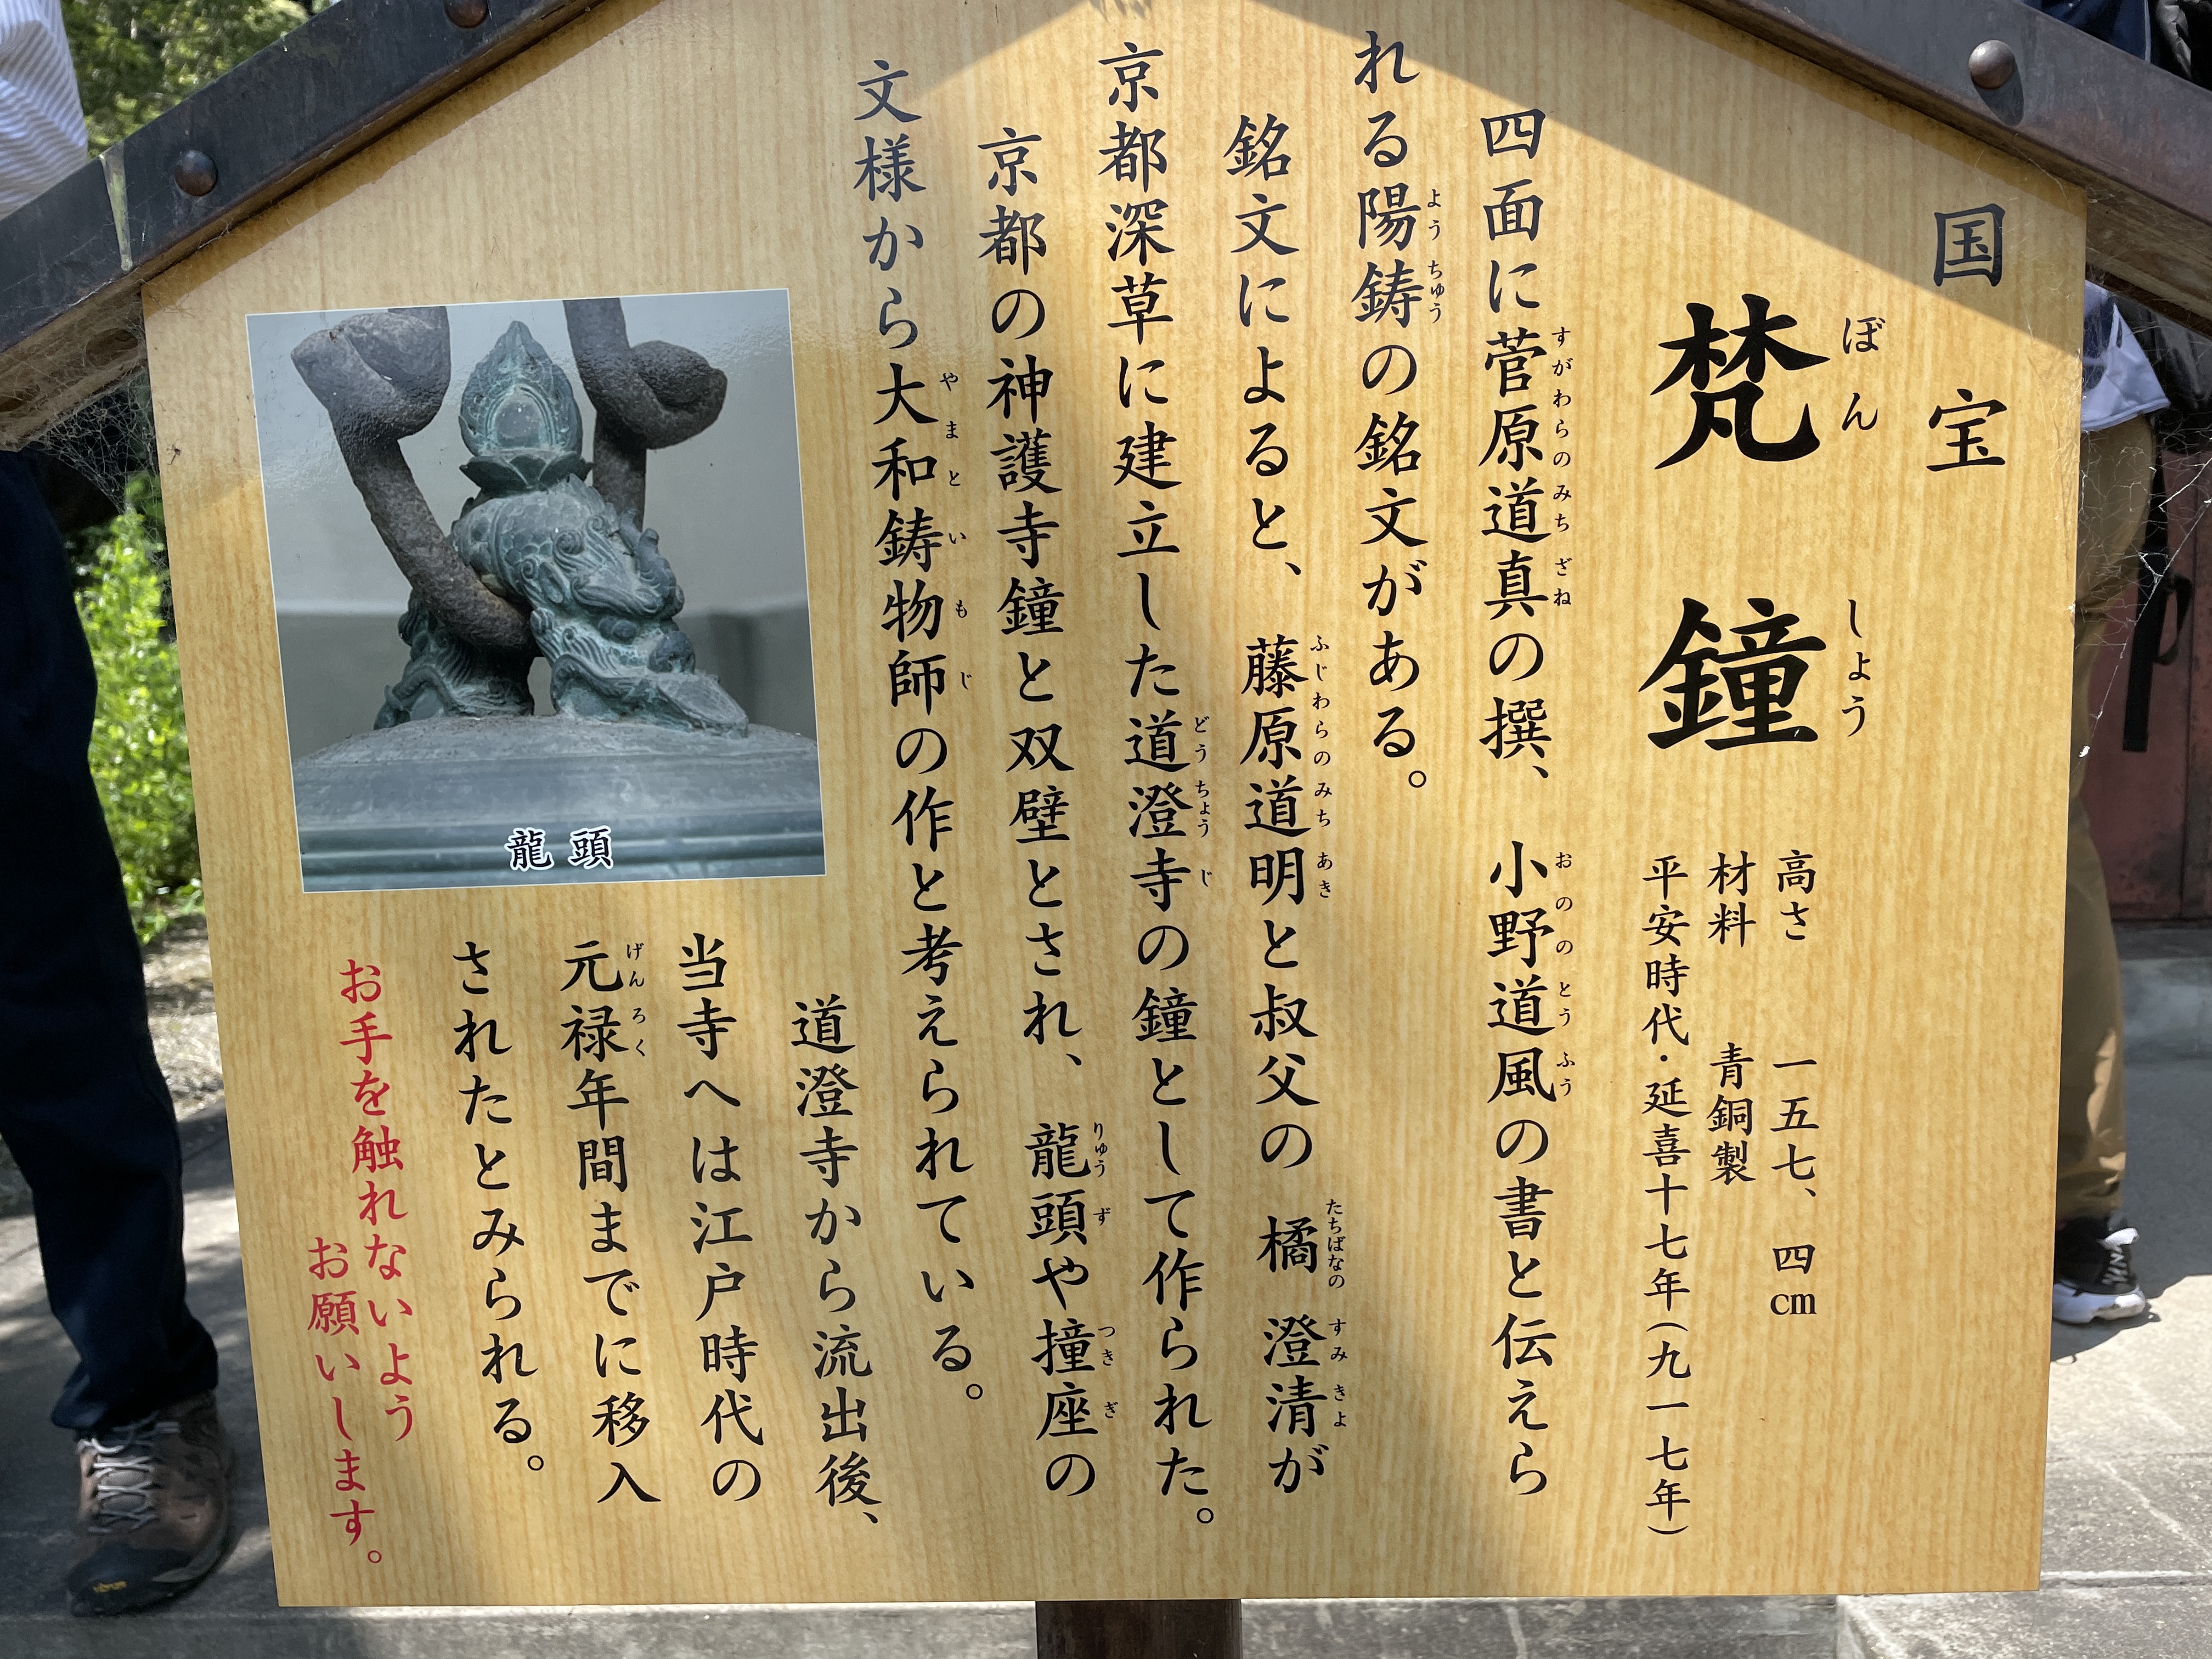 国宝
梵鐘
ぼんしょう
高さ 一五七、四㎝
材料 青銅製
平安時代・延喜十七年(九一七年)
四面に菅原道真の撰、小野道風の書と伝えら
すがわらのみちざね おののとうふう
れる陽鋳の銘文がある。
ようちゅう
銘文によると、藤原道明と叔父の橘澄清が
ふじわらのみちあき たちばなのすみきよ
京都深草に建立した道澄寺の鐘として作られた。
どうちょうじ
京都の神護寺鐘と双璧とされ、龍頭や撞座の
りゅうず つきざ
文様から大和鋳物師の作と考えられている。
やまといもじ
道澄寺から流出後、
当寺へは江戸時代の
元禄年間までに移入
げんろく
されたとみられる。
龍頭
お手を触れないよう
お願いします。